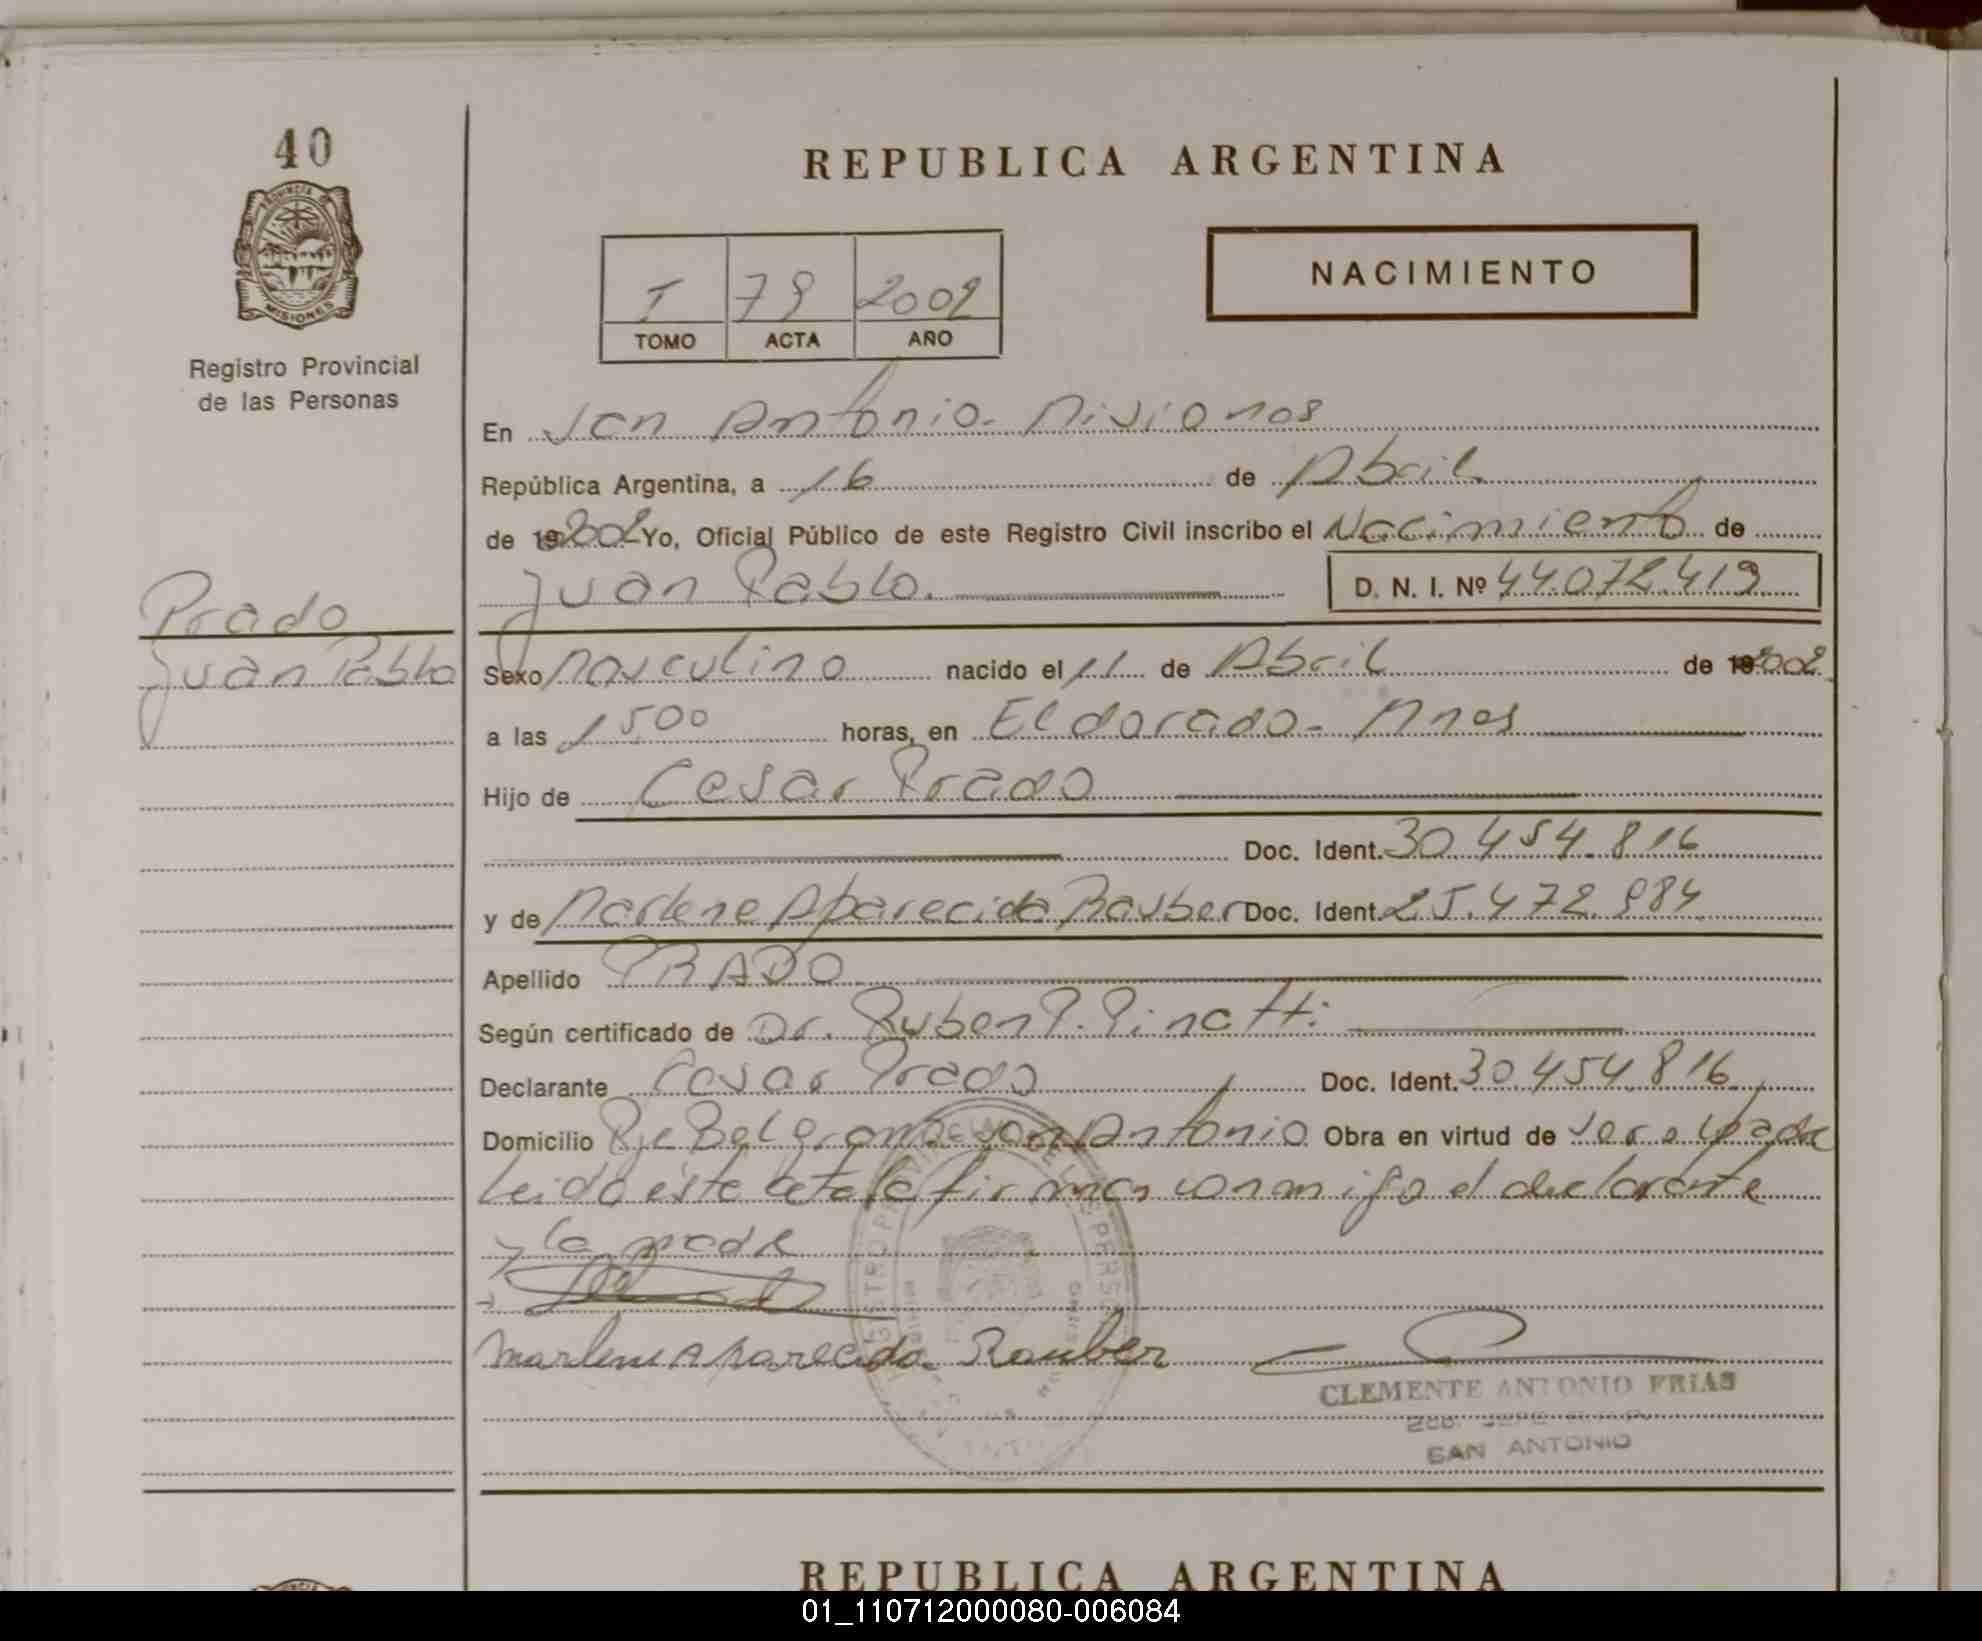 40
PROVINCIA
MISIONES
Registro Provincial
de las Personas
Prado
Juan Pablo
REPUBLICA ARGENTINA
I 79 2002
TOMO ACTA AÑO
NACIMIENTO
En San Antonio. Misiones
República Argentina, a 16 de Abril
de 2002 Yo, Oficial Público de este Registro Civil inscribo el Nacimiento de
Juan Pablo. D. N. I. Nº 44.072.419
Sexo Masculino nacido el 11 de Abril de 2002
a las 1500 horas, en Eldorado - Mnes
Hijo de Cesar Prado
Doc. Ident. 30.454.816
y de Marlene Aparecida Rauber Doc. Ident. 25.472.984
Apellido PRADO
Según certificado de Dr. Ruben P. Pinatti
Declarante Cesar Prado Doc. Ident. 30.454.816
Domicilio Pje Belgrano San Antonio Obra en virtud de ser el padre
Leida este acta la firman conmigo el declarante
y la madre
Marlene Aparecida Rauber
CLEMENTE ANTONIO FRIAS
SAN ANTONIO
REPUBLICA ARGENTINA
01_110712000080-006084